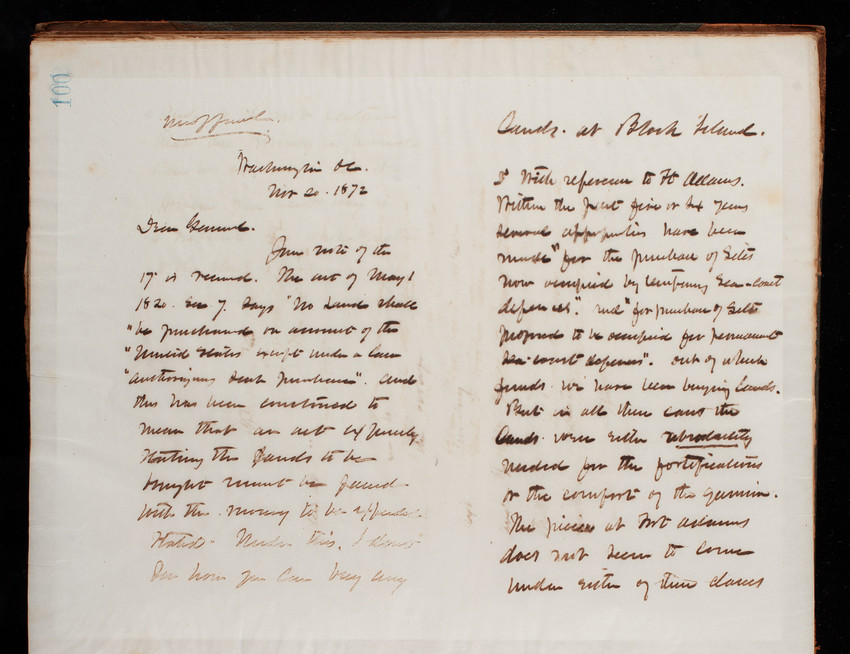 100
Unofficial.
Washington DC.
Nov 20. 1872
Dear General.
Your note of the
17 is received. The act of May 1
1820. Sec 7. Says "No Land shall
"be purchased on account of the
"United States except under a law
"authorizing such purchase". And
this has been construed to
mean that an act expressly
stating the Lands to be
bought must be passed
with the money to be appro-
Under this, I don't
see how you can buy any
Lands. at Block Island.
With reference to Ft Adams.
Within the past five or six years
several appropriations have been
made "for the purchase of Sites
now occupied by temporary Sea-coast
defenses". and "for purchase of Sites
proposed to be occupied for permanent
Sea-coast defenses". out of which
funds we have been buying Lands.
But in all these cases the
Lands were either absolutely
needed for the fortifications
or the comfort of the garrison.
The piece at Fort Adams
does not seem to come
under either of these classes